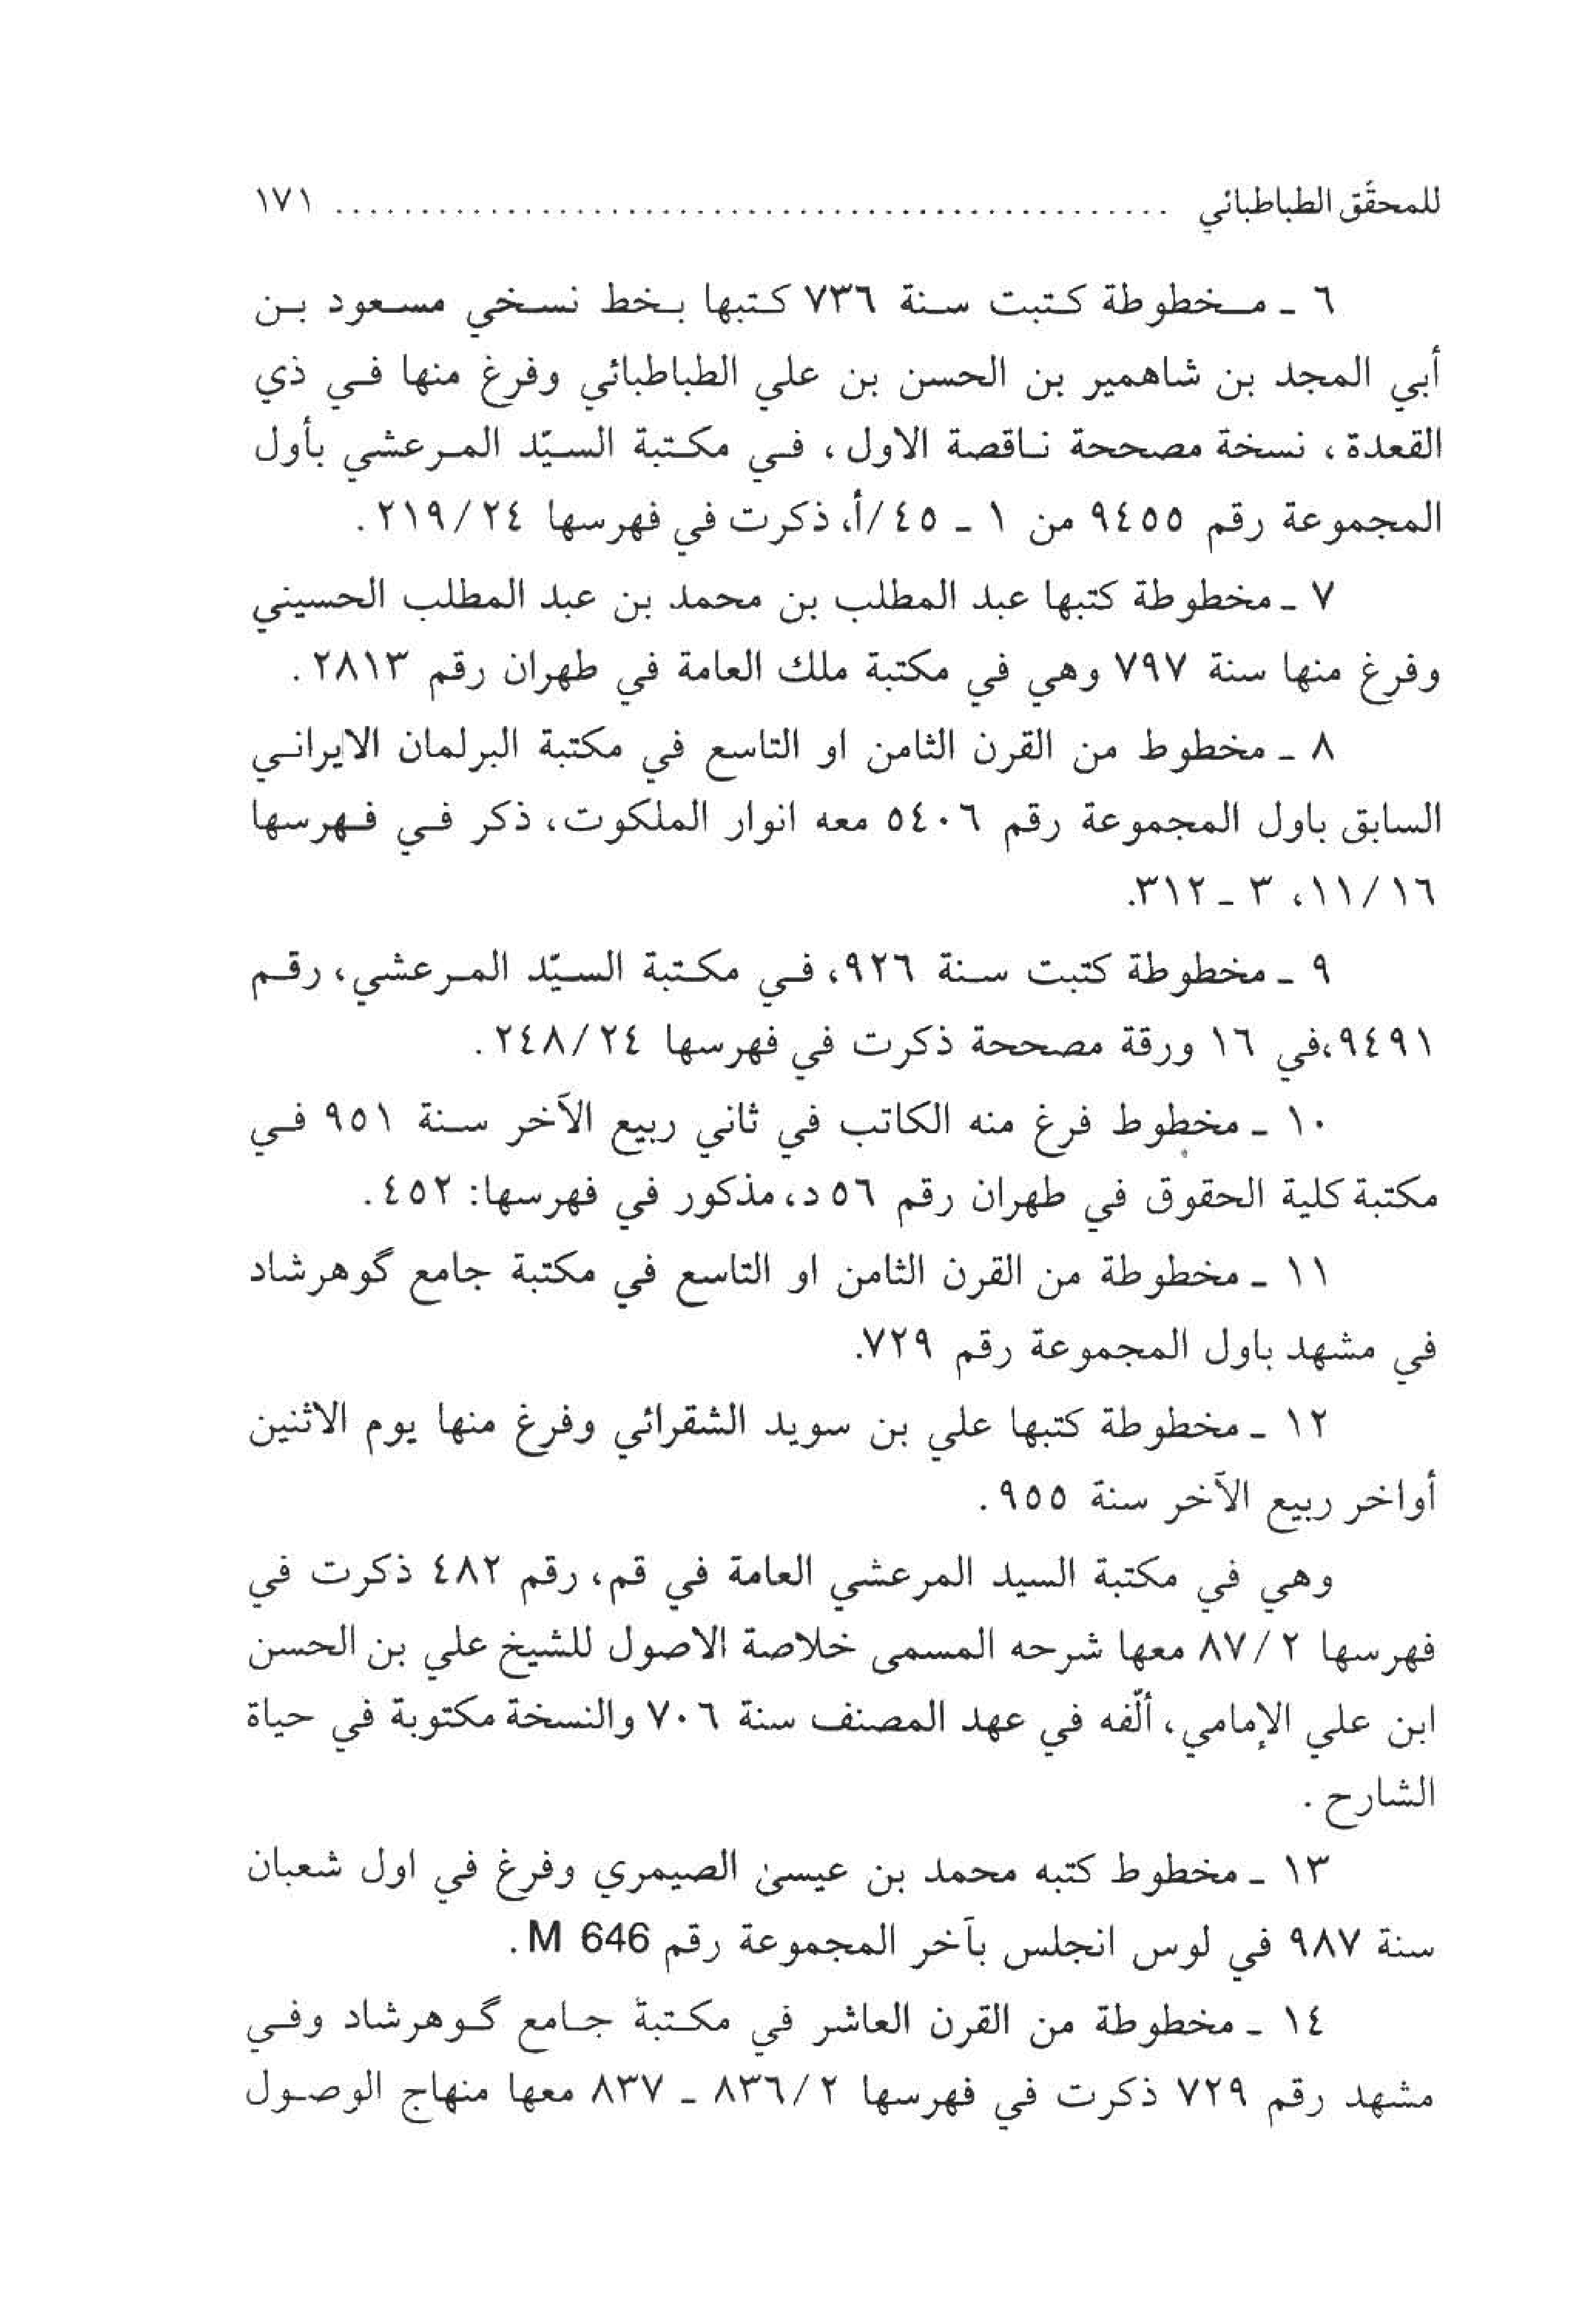 للمحقّق الطباطبائي ................................................ ١٧١
٦ ـ مخطوطة كتبت سنة ٧٣٦ كتبها بخط نسخي مسعود بن
أبي المجد بن شاهمير بن الحسن بن علي الطباطبائي وفرغ منها في ذي
القعدة ، نسخة مصححة ناقصة الاول ، في مكتبة السيّد المرعشي بأول
المجموعة رقم ٩٤٥٥ من ١ ـ ٤٥/أ، ذكرت في فهرسها ٢١٩/٢٤ .
٧ ـ مخطوطة كتبها عبد المطلب بن محمد بن عبد المطلب الحسيني
وفرغ منها سنة ٧٩٧ وهي في مكتبة ملك العامة في طهران رقم ٢٨١٣ .
٨ ـ مخطوط من القرن الثامن او التاسع في مكتبة البرلمان الايراني
السابق باول المجموعة رقم ٥٤٠٦ معه انوار الملكوت، ذكر في فهرسها
١١/١٦، ٣ ـ ٣١٢.
٩ ـ مخطوطة كتبت سنة ٩٢٦، في مكتبة السيّد المرعشي، رقم
٩٤٩١،في ١٦ ورقة مصححة ذكرت في فهرسها ٢٤٨/٢٤ .
١٠ ـ مخطوط فرغ منه الكاتب في ثاني ربيع الآخر سنة ٩٥١ في
مكتبة كلية الحقوق في طهران رقم ٥٦د، مذكور في فهرسها: ٤٥٢ .
١١ ـ مخطوطة من القرن الثامن او التاسع في مكتبة جامع گوهرشاد
في مشهد باول المجموعة رقم ٧٢٩.
١٢ ـ مخطوطة كتبها علي بن سويد الشقرائي وفرغ منها يوم الاثنين
أواخر ربيع الآخر سنة ٩٥٥ .
وهي في مكتبة السيد المرعشي العامة في قم، رقم ٤٨٢ ذكرت في
فهرسها ٨٧/٢ معها شرحه المسمى خلاصة الاصول للشيخ علي بن الحسن
ابن علي الإمامي، ألّفه في عهد المصنف سنة ٧٠٦ والنسخة مكتوبة في حياة
الشارح .
١٣ ـ مخطوط كتبه محمد بن عيسىٰ الصيمري وفرغ في اول شعبان
سنة ٩٨٧ في لوس انجلس بآخر المجموعة رقم M 646 .
١٤ ـ مخطوطة من القرن العاشر في مكتبة جامع گوهرشاد وفي
مشهد رقم ٧٢٩ ذكرت في فهرسها ٨٣٦/٢ ـ ٨٣٧ معها منهاج الوصول